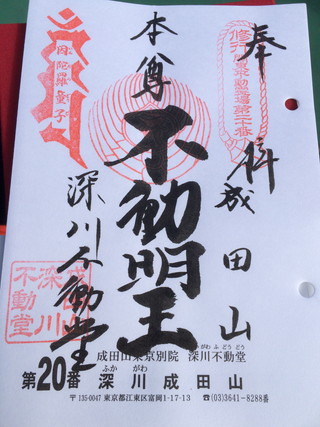 奉拝
成田山
本尊
不動明王
深川不動堂
成田山
深川
不動堂
成田山東京別院 深川不動堂
第20番 深川成田山
ふか がわ
〒135-0047 東京都江東区富岡1-17-13 ☎(03)3641-8288番